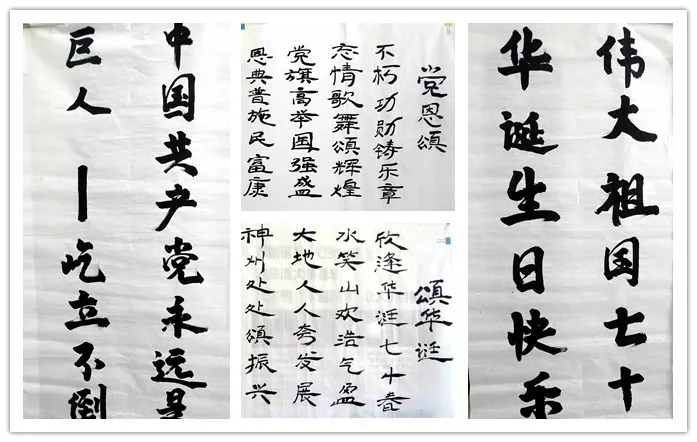 中国共产党永远是
巨人—屹立不倒
党恩頌
不朽功勋铸乐章
忘情歌舞頌辉煌
党旗高举国强盛
恩典普施民富康
頌华诞
欣逢华诞七十春
水笑山欢浩气盈
大地人人夸发展
神州处处頌振兴
伟大祖国七十
华诞生日快乐